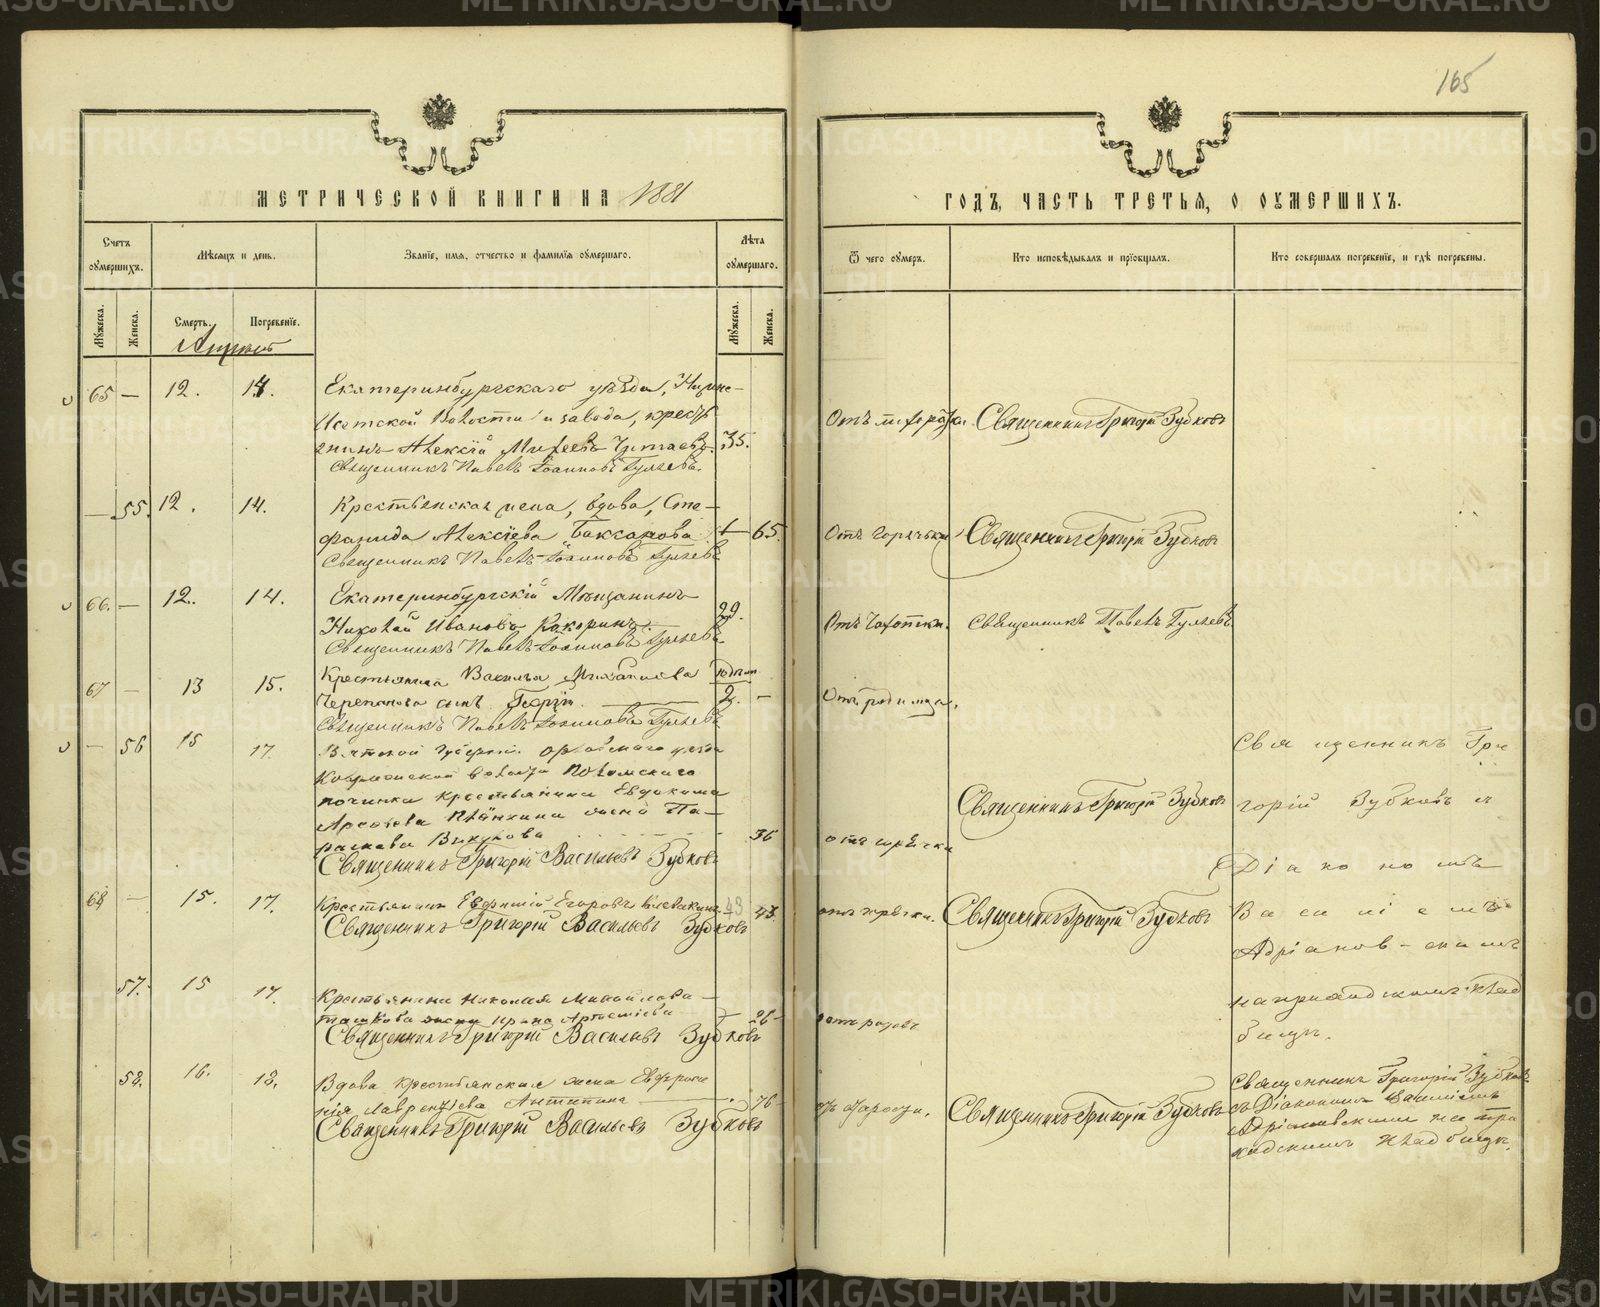 165
МЕТРИЧЕСКОЙ КНИГИ НА 1881
ГОДЪ, ЧАСТЬ ТРЕТЬЯ, О ОУМЕРШИХЪ.
Счетъ оумершихъ.
Мѣсяцъ и день.
Званіе, имя, отчество и фамилія оумершаго.
Лѣта оумершаго.
Ѿ чего оумеръ.
Кто исповѣдывалъ и пріобщалъ.
Кто совершалъ погребеніе, и гдѣ погребены.
Мужеска.
Женска.
Смерть.
Погребеніе.
Мужеска.
Женска.
Апрѣль
65 — 12. 14. Екатеринбургскаго уѣзда, Нижне-
Исетской волости и завода, кресть-
янинъ Алексѣй Михеевъ 35.
Священникъ Павелъ Іоанновъ Гуляевъ.
Священникъ Григорій Зубковъ
— 55. 12. 14. Крестьянская жена, вдова, Сте-
фанида Алексѣева Баксанова — 65. Отъ горячки Священникъ Григорій Зубковъ
Священникъ Павелъ Іоанновъ Гуляевъ
66. — 12. 14. Екатеринбургскій Мѣщанинъ
Николай Ивановъ Кокоринъ. 29. Отъ чахотки. Священникъ Павелъ Гуляевъ
Священникъ Павелъ Іоанновъ Гуляевъ
67 — 13 15. Крестьянина Василья Михайлова
Черепанова сынъ Георгій. 2. — Отъ родимца.
Священникъ Павелъ Іоанновъ Гуляевъ
— 56 15 17. Вятской губерніи Орловскаго уѣзда
волости
починка крестьянина Евдокима
жена Па-
раскева 36 отъ горячки
Священникъ Григорій Васильевъ Зубковъ
Священникъ Григорій Зубковъ
68 — 15. 17. Крестьянинъ Евфимій Егоровъ 43 43. Священникъ Григорій Зубковъ
Священникъ Григорій Васильевъ Зубковъ
57. 15 17. Крестьянина Николая Михайлова
жена Ирина 26 отъ родовъ
Священникъ Григорій Васильевъ Зубковъ
58. 16. 18. Вдова крестьянская жена Евфроси-
нія Лаврентьева Антипина — 76 отъ старости. Священникъ Григорій Зубковъ
Священникъ Григорій Васильевъ Зубковъ
Священникъ Гри-
горій Зубковъ съ
Діакономъ
Василіемъ
Адріанов-скимъ
на приходскомъ клад-
бищѣ.
Священникъ Григорій Зубковъ
съ Діакономъ Василіемъ
Адріановскимъ на при-
ходскомъ кладбищѣ.
METRIKI.GASO-URAL.RU